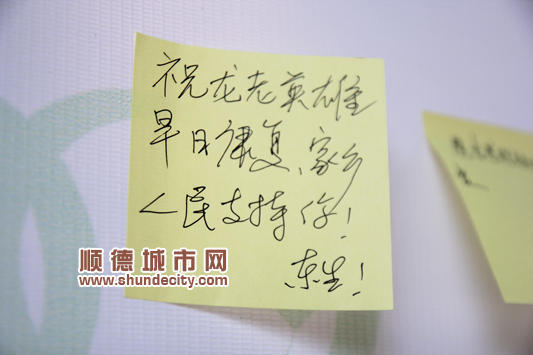 祝龙老英雄
早日康复、家乡
人民支持你！
东生！
顺德城市网
www.shundecity.com